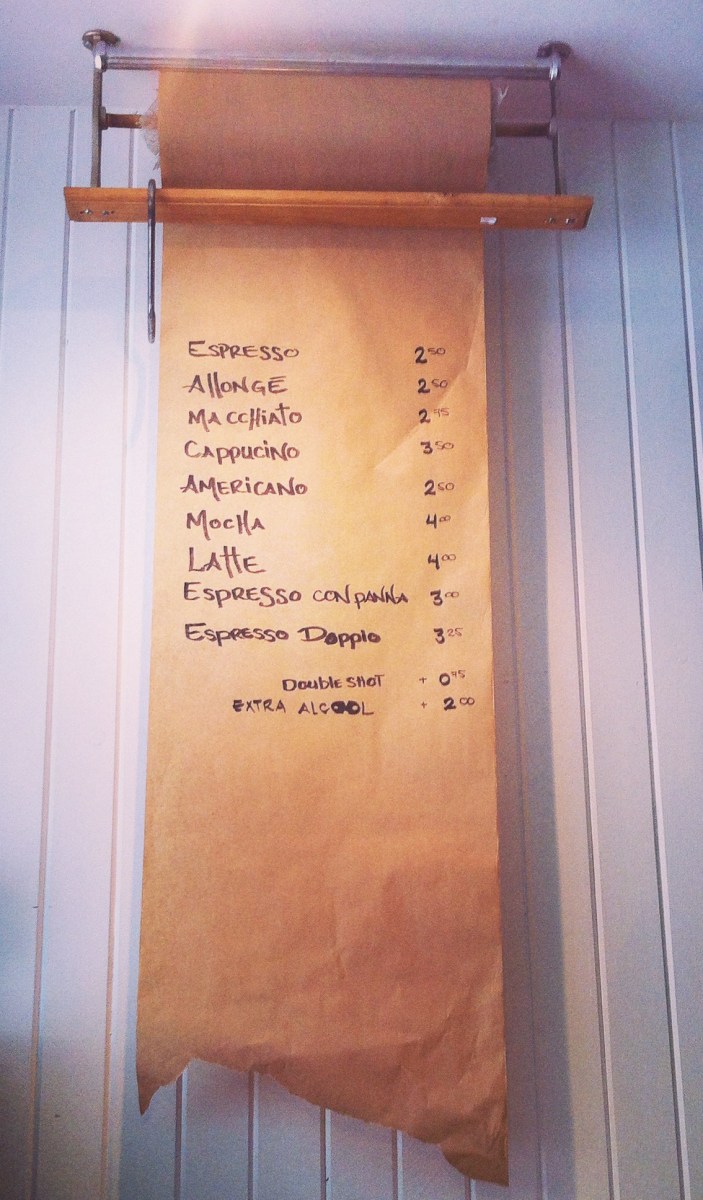 ESPRESSO 2 50
ALLONGÉ 2 50
MACCHIATO 2 95
CAPPUCINO 3 50
AMERICANO 2 50
MOCHA 4 00
LATTE 4 00
ESPRESSO CON PANNA 3 00
ESPRESSO DOPPIO 3 25
DOUBLE SHOT + 0 95
EXTRA ALCOOL + 2 00